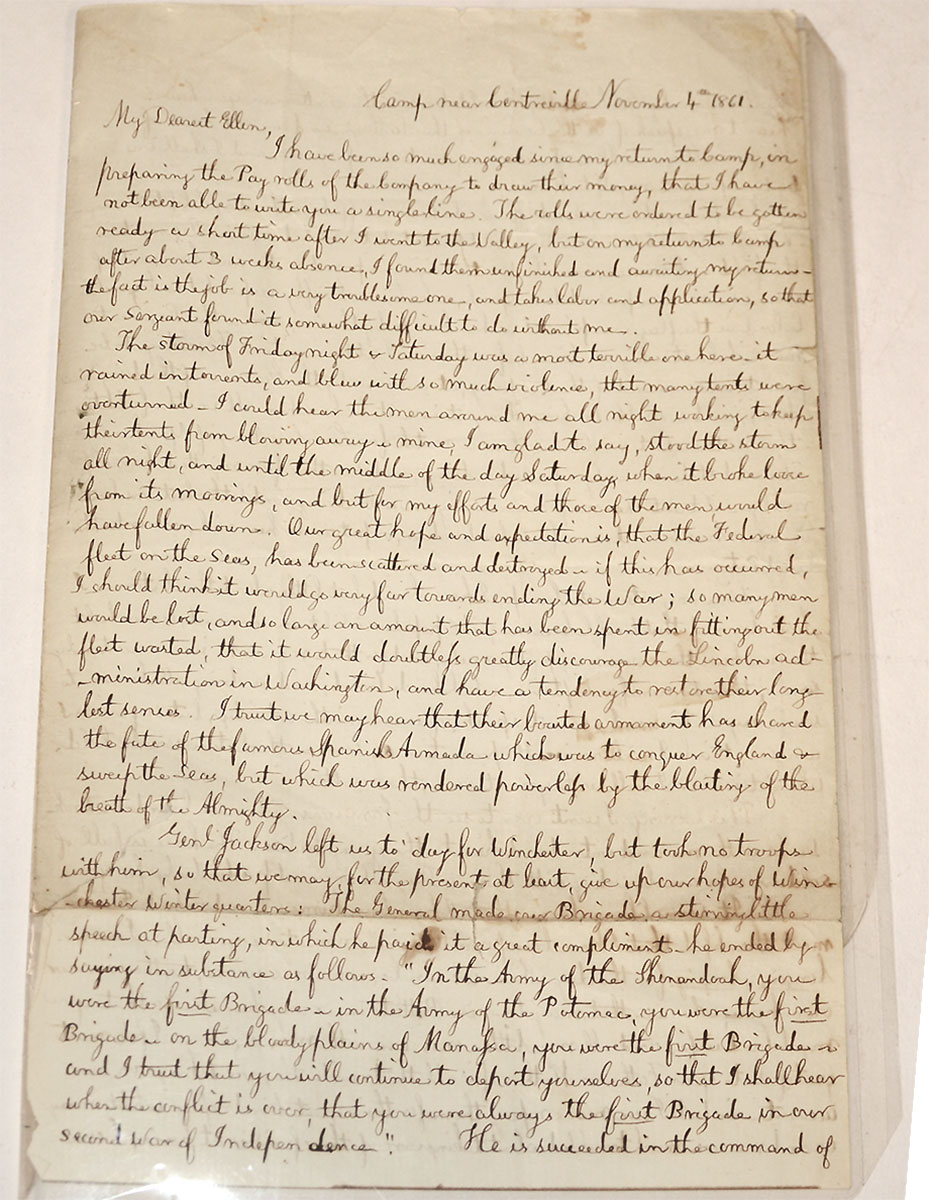 Camp near Centreville November 4th 1861.
My Dearest Ellen,
I have been so much engaged since my return to Camp, in
preparing the Pay rolls of the Company to draw their money, that I have
not been able to write you a single line. The rolls were ordered to be gotten
ready a short time after I went to the Valley, but on my return to Camp
after about 3 weeks absence, I found them unfinished and awaiting my return –
the fact is the job is a very troublesome one, and takes labor and application, so that
our Sergeant found it somewhat difficult to do without me.
The storm of Friday night & Saturday was a most terrible one here – it
rained in torrents, and blew with so much violence, that many tents were
overturned – I could hear the men around me all night working to keep
their tents from blowing away – mine, I am glad to say, stood the storm
all night, and until the middle of the day Saturday, when it broke loose
from its moorings, and but for my efforts and those of the men, would
have fallen down. Our great hope and expectation is, that the Federal
fleet on the Seas, has been scattered and destroyed – if this has occurred,
I should think it would go very far towards ending the War; so many men
would be lost, and so large an amount that has been spent in fitting out the
fleet wasted, that it would doubtless greatly discourage the Lincoln ad-
-ministration in Washington, and have a tendency to restore their long
lost senses. I trust we may hear that their boasted armament has shared
the fate of the famous Spanish Armada which was to conquer England &
sweep the Seas, but which was rendered powerless by the blasting of the
breath of the Almighty.
Genl Jackson left us to day for Winchester, but took no troops
with him, so that we may, for the present at least, give up our hopes of Win-
-chester Winter quarters: The General made our Brigade a stirring little
speech at parting, in which he paid it a great compliment – he ended by
saying in substance as follows – "In the Army of the Shenandoah, you
were the first Brigade – in the Army of the Potomac, you were the first
Brigade – on the bloody plains of Manassa, you were the first Brigade –
and I trust that you will continue to deport yourselves, so that I shall hear
when the conflict is over, that you were always the first Brigade in our
second War of Independence". He is succeeded in the command of